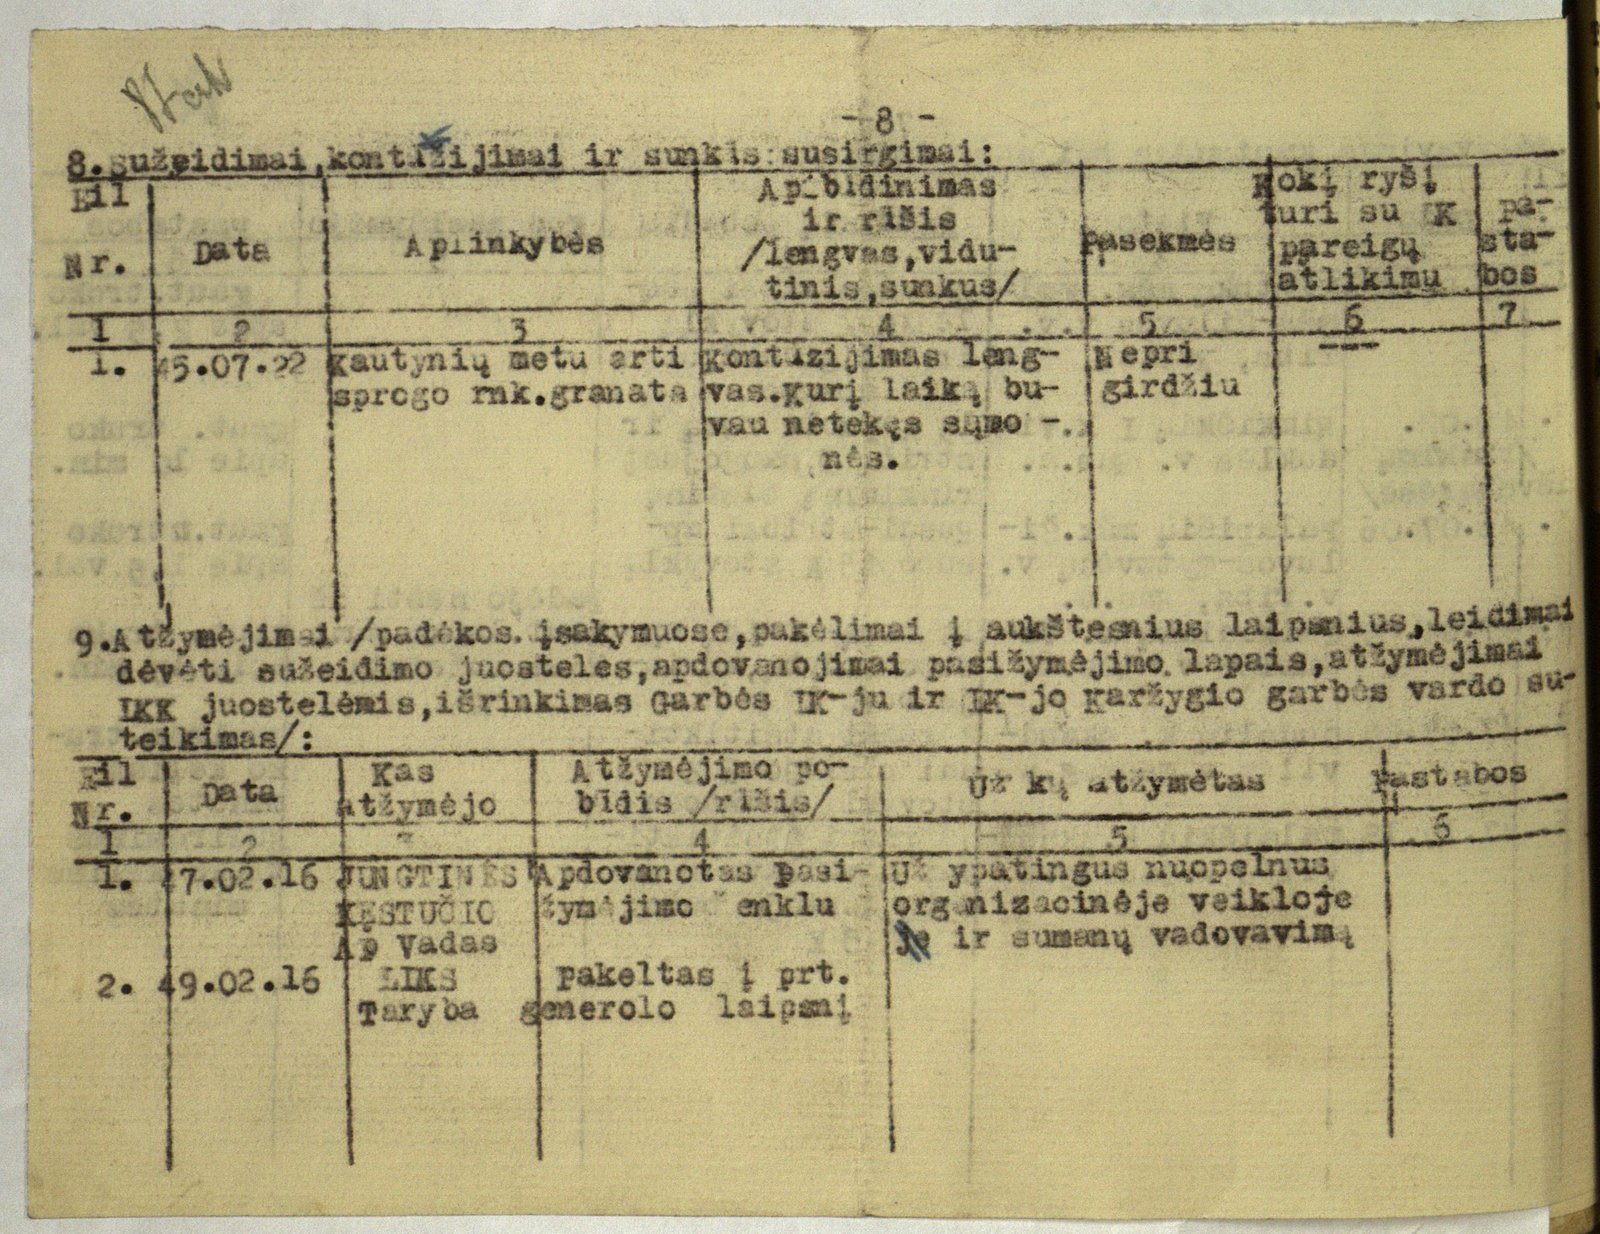 - 8 -
8.Sužeidimai,kontūzijimai ir sunkis susirgimai:
Eil Nr.
Data
Aplinkybės
Apibūdinimas
ir rūšis
/lengvas,vidu-
tinis,sunkus/
Pasekmės
Kokį ryšį
turi su LK
pareigų
atlikimu
Pa-
sta-
bos
1 2 3 4 5 6 7
1. 45.07.22
Kautynių metu arti
sprogo rnk.granata
Kontūzijimas leng-
vas.Kurį laiką bu-
vau netekęs sąmo -
nės.
Nepri
girdžiu
---
9.Atžymėjimai /padėkos įsakymuose,pakėlimai į aukštesnius laipsnius,leidimai
dėvėti sužeidimo juosteles,apdovanojimai pasižymėjimo lapais,atžymėjimai
LKK juostelėmis,išrinkimas Garbės LK-ju ir LK-jo Karžygio garbės vardo su-
teikimas/:
Eil
Nr.
Data
Kas
atžymėjo
Atžymėjimo po-
būdis /rūšis/
Už ką atžymėtas
Pastabos
1 2 3 4 5 6
1. 47.02.16
JUNGTINĖS
KĘSTUČIO
Ap Vadas
Apdovanotas Pasi-
žymėjimo Ženklu
Už ypatingus nuopelnus
organizacinėje veikloje
je ir sumanų vadovavimą
2. 49.02.16
LIKS
Taryba
Pakeltas į prt.
generolo laipsnį